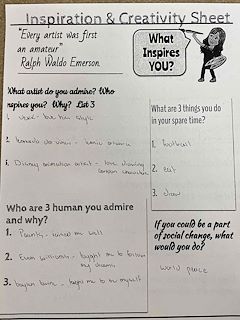 Inspiration & Creativity Sheet
"Every artist was first
an amateur"
Ralph Waldo Emerson.
What
Inspires
YOU?
What artist do you admire? Who
nspires you? Why? List 3
1. love his style
2. Leonardo da vinci -
3. Disney animation artist - love drawing
cartoon characters
What are 3 things you do
in your spare time?
1. football
2. eat
3. draw
Who are 3 human you admire
and why?
1. Parents - raised me well
2. - taught me to follow
my dreams
3. - me to be myself
If you could be a part
of social change, what
would you do?
world peace